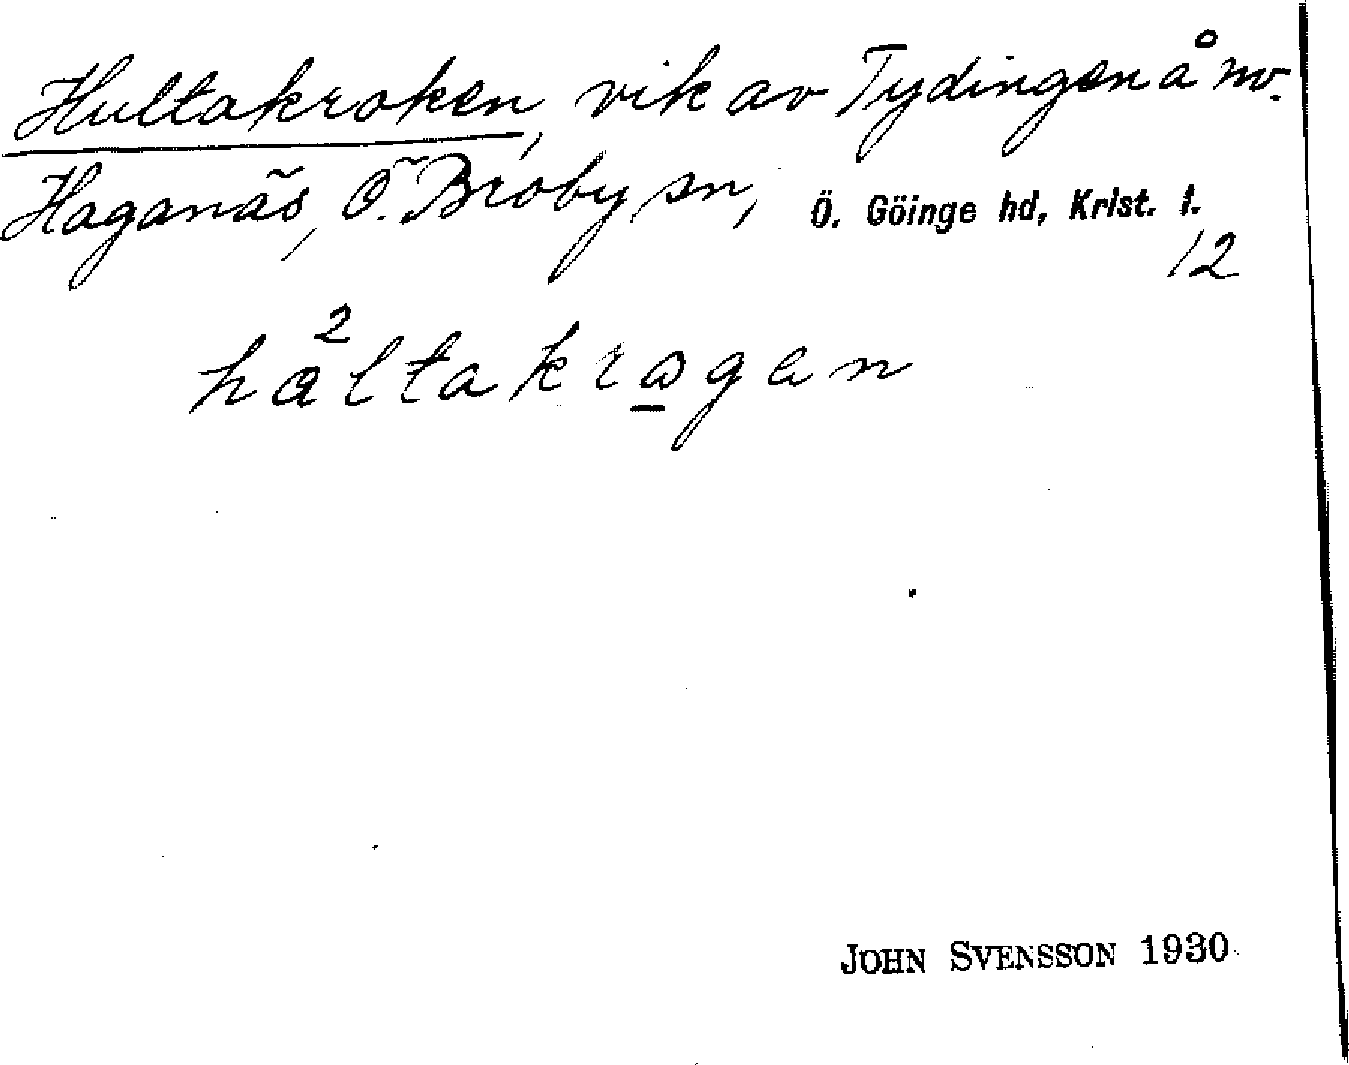 Hultakroken, vik av Tydingen å nv.
Haganäs, Ö. Broby sn, Ö. Göinge hd, Krist. l.
12
2
håltakrogen
JOHN SVENSSON 1930